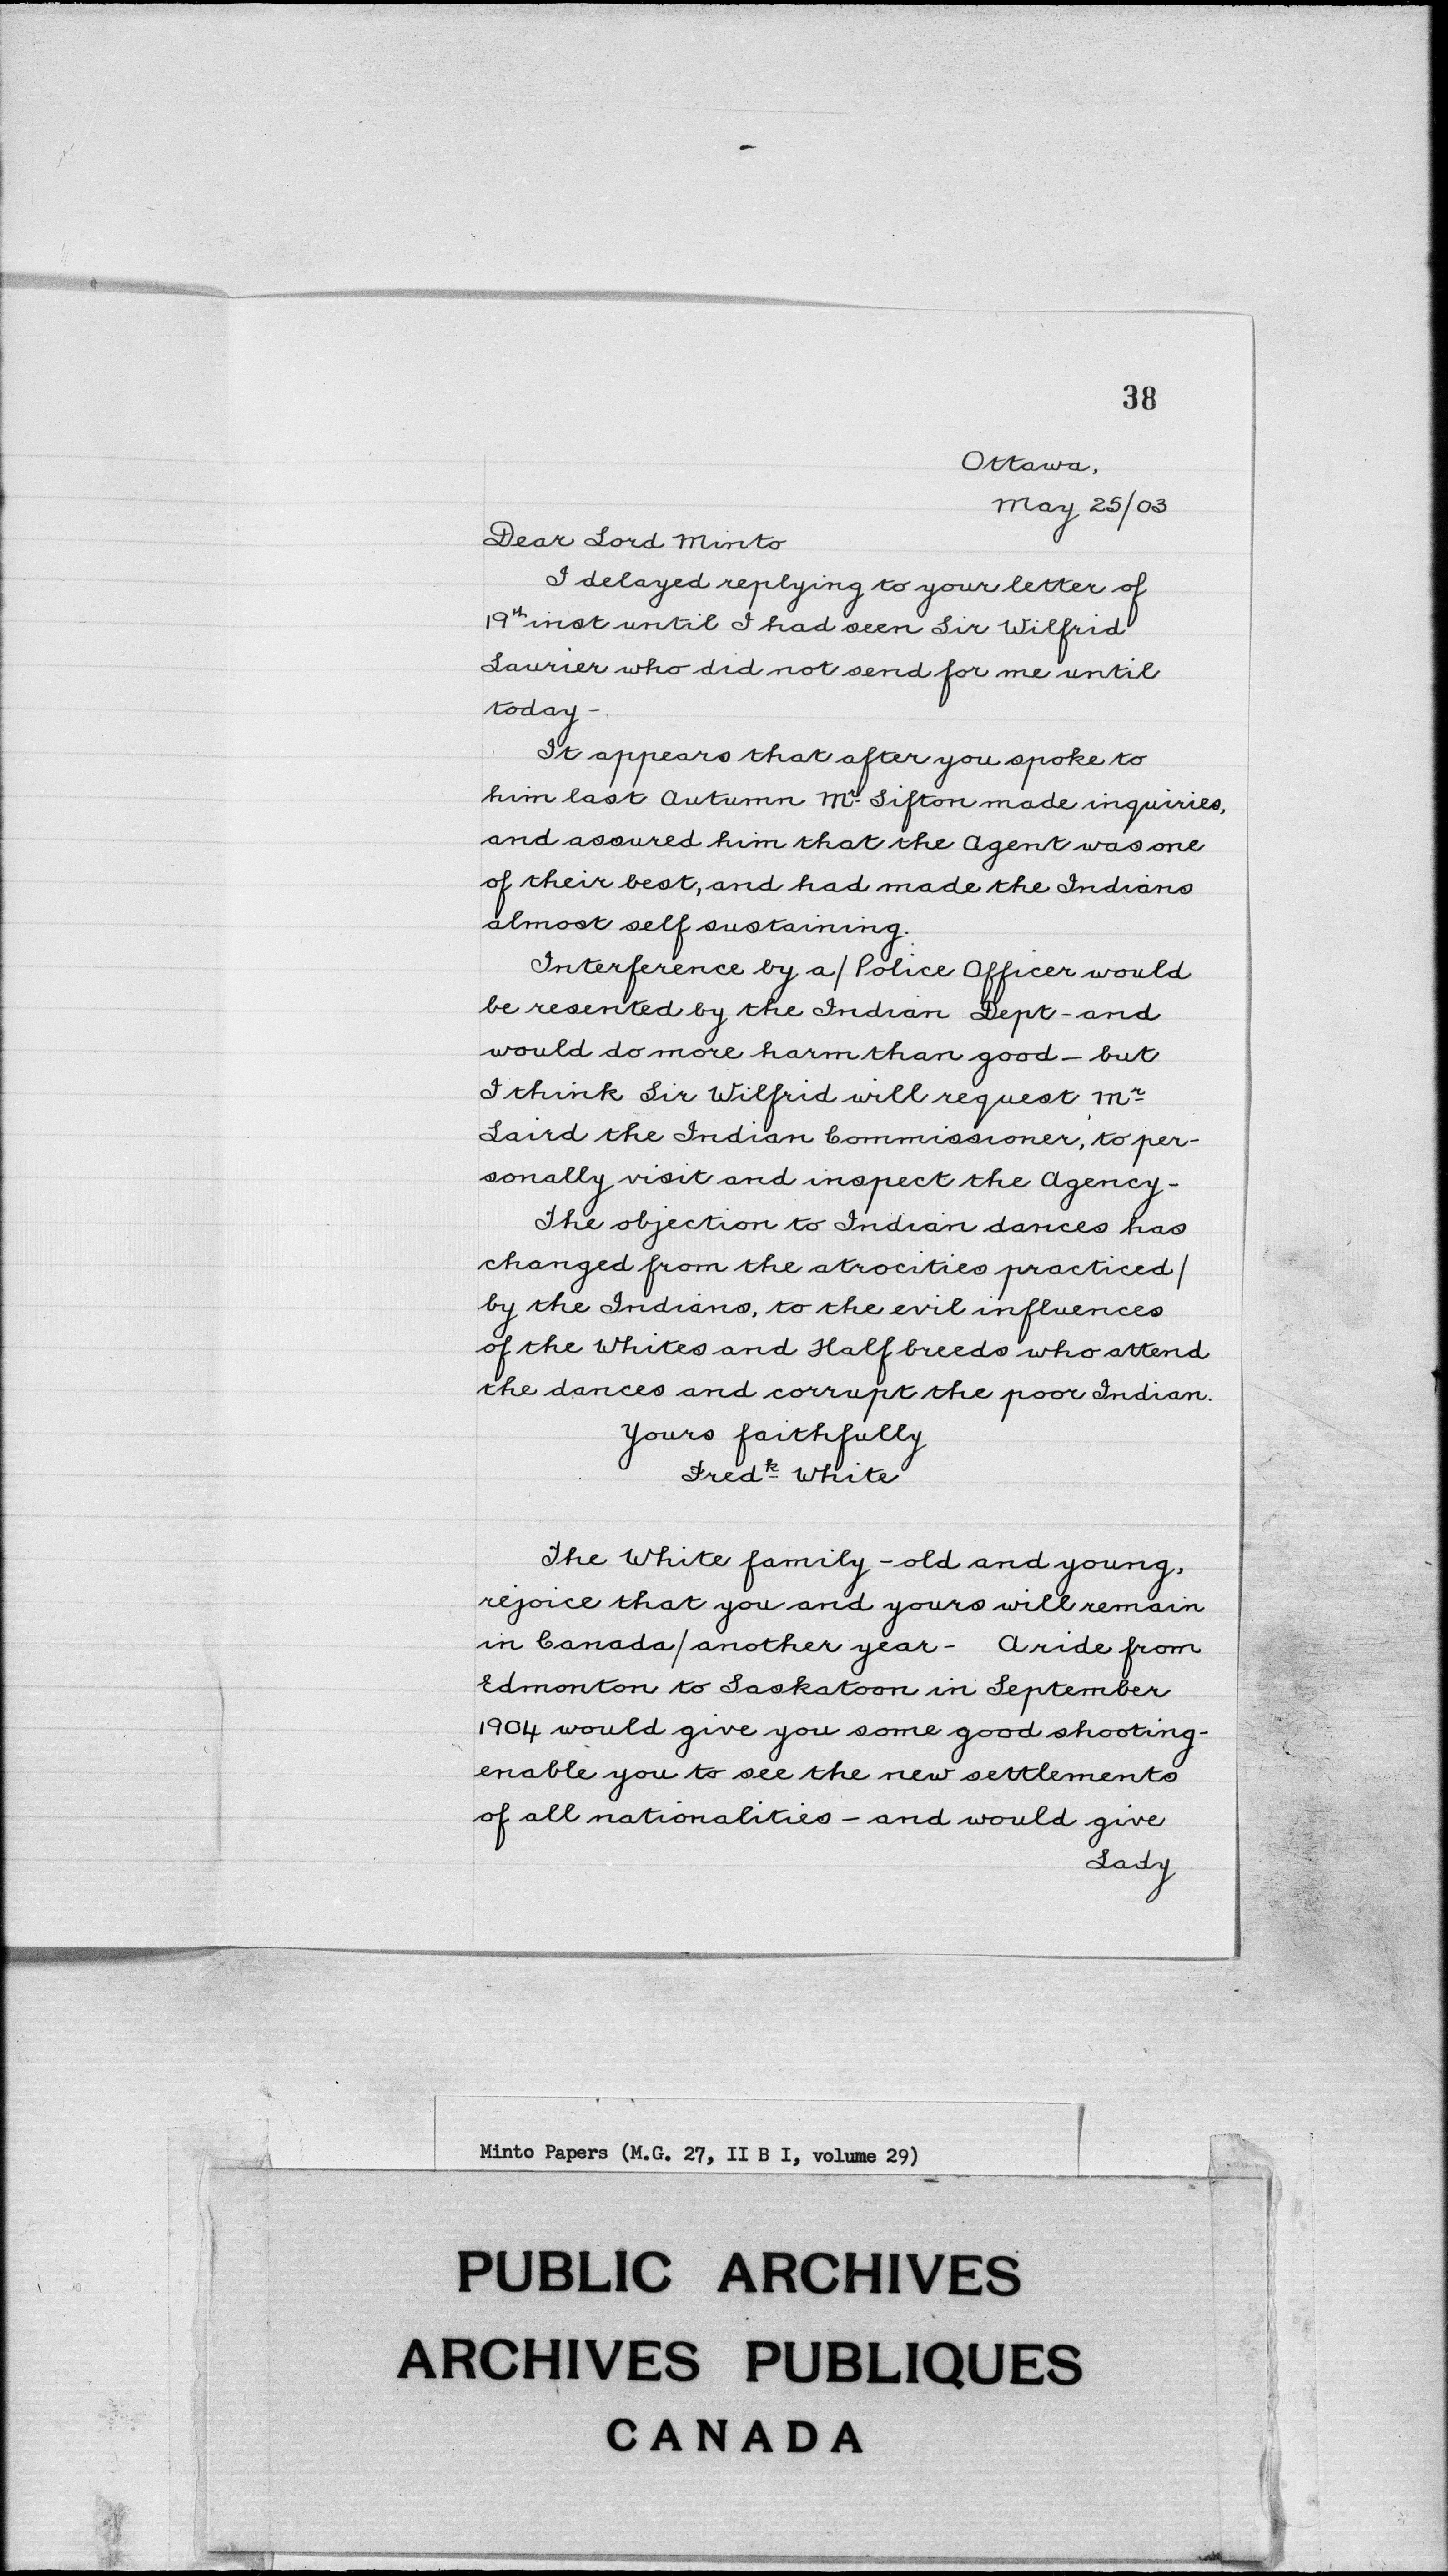 38
Ottawa,
May 25/03
Dear Lord Minto
I delayed replying to your letter of
19th inst until I had seen Sir Wilfrid
Laurier who did not send for me until
today -
It appears that after you spoke to
him last Autumn Mr. Sifton made inquiries,
and assured him that the Agent was one
of their best, and had made the Indians
almost self sustaining.
Interference by a/ Police Officer would
be resented by the Indian Dept - and
would do more harm than good - but
I think Sir Wilfrid will request Mr
Laird the Indian Commissioner, to per-
sonally visit and inspect the Agency -
The objection to Indian dances has
changed from the atrocities practiced/
by the Indians, to the evil influences
of the Whites and Half breeds who attend
the dances and corrupt the poor Indian.
Yours faithfully
Fredk White
The White family - old and young,
rejoice that you and yours will remain
in Canada/ another year - A ride from
Edmonton to Saskatoon in September
1904 would give you some good shooting -
enable you to see the new settlements
of all nationalities - and would give
Lady
Minto Papers (M.G. 27, II B I, volume 29)
PUBLIC ARCHIVES
ARCHIVES PUBLIQUES
CANADA